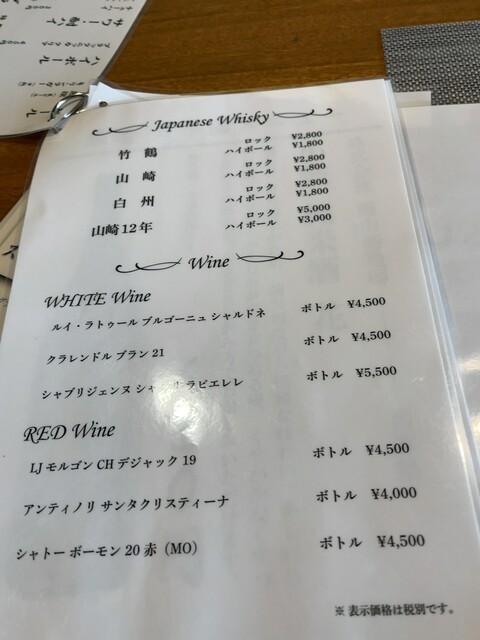 Japanese Whisky
竹 鶴 ロック ¥2,800
ハイボール ¥1,800
山 崎 ロック ¥2,800
ハイボール ¥1,800
白 州 ロック ¥2,800
ハイボール ¥1,800
山崎12年 ロック ¥5,000
ハイボール ¥3,000
Wine
WHITE Wine
ルイ・ラトゥール ブルゴーニュ シャルドネ ボトル ¥4,500
クラレンドル ブラン 21 ボトル ¥4,500
シャブリジェンヌ ラピエレレ ボトル ¥5,500
RED Wine
LJ モルゴン CH デジャック 19 ボトル ¥4,500
アンティノリ サンタクリスティーナ ボトル ¥4,000
シャトー ボーモン 20 赤（MO） ボトル ¥4,500
※ 表示価格は税別です。
サワー・酎ハイ
ハイボール